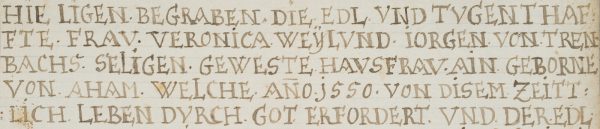 HIE LIGEN · BEGRABEN · DIE · EDL VND TVGENTHAF-
FTE · FRAV · VERONICA WEŸLVND · IORGEN · VON · TREN-
BACHS · SELIGEN · GEWESTE HAVSFRAV · AIN GEBORNE
VON · AHAM · WELCHE · AÑO · 1550 · VON DISEM ZEITT-
LICH LEBEN DVRCH · GOT ERFORDERT · VND · DER · EDL